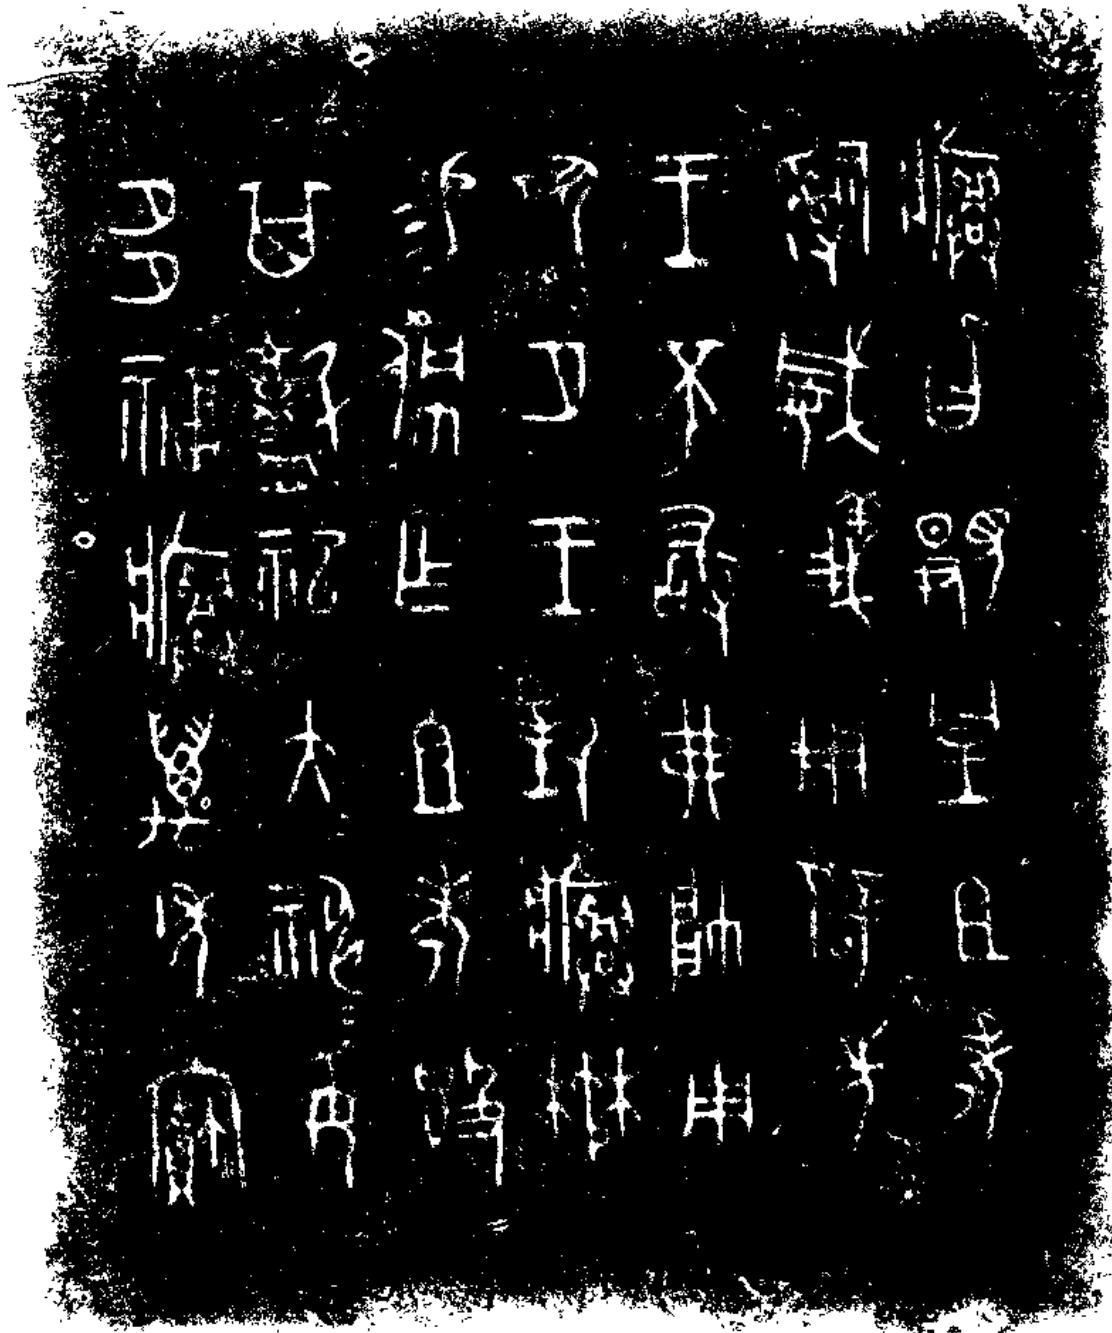 㾓曰覭皇且考
𤔲威義用辟先
王不敢弗帥用
夙夕王對㾓楙
易佩乍且考𣪘
其𦎫祀大神妥
多福㾓萬年寶